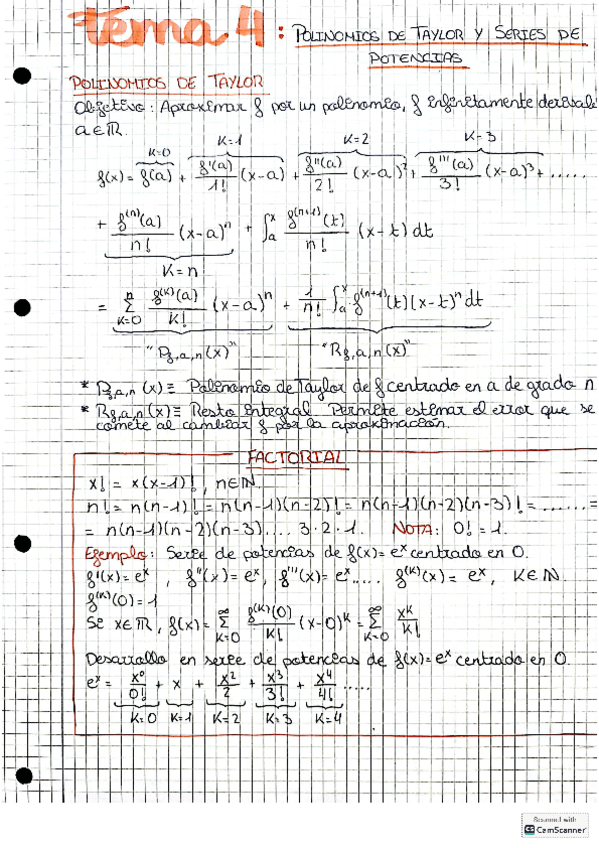 Tema 4: POLINOMIOS DE TAYLOR Y SERIES DE
POTENCIAS
POLINOMIOS DE TAYLOR
Objetivo: Aproximar f por un polinomio, f infinitamente derivable
a∈ℝ.
K=0 K=1 K=2 K=3
f(x) = f(a) + f'(a)/1! (x-a) + f''(a)/2! (x-a)² + f'''(a)/3! (x-a)³ + .....
+ f⁽ⁿ⁾(a)/n! (x-a)ⁿ + ∫ₐˣ f⁽ⁿ⁺¹⁾(t)/n! (x-t) dt
K=n
= Σ_{K=0}^{n} f⁽ᴷ⁾(a)/K! (x-a)ⁿ + 1/n! ∫ₐˣ f⁽ⁿ⁺¹⁾(t)(x-t)ⁿ dt
"Pf,a,n(x)" "Rf,a,n(x)"
* Pf,a,n(x) ≡ Polinomio de Taylor de f centrado en a de grado n
* Rf,a,n(x) ≡ Resto integral. Permite estimar el error que se
comete al cambiar f por la aproximación.
FACTORIAL
x! = x(x-1)!, n∈ℕ.
n! = n(n-1)! = n(n-1)(n-2)! = n(n-1)(n-2)(n-3)! = ....... =
= n(n-1)(n-2)(n-3).... 3·2·1. NOTA: 0! = 1.
Ejemplo: Serie de potencias de f(x) = eˣ centrado en 0.
f'(x) = eˣ, f''(x) = eˣ, f'''(x) = eˣ..... f⁽ᴷ⁾(x) = eˣ, K∈ℕ.
f⁽ᴷ⁾(0) = 1
Si x∈ℝ, f(x) = Σ_{K=0}^{∞} f⁽ᴷ⁾(0)/K! (x-0)ᴷ = Σ_{K=0}^{∞} xᴷ/K!
Desarrollo en serie de potencias de f(x) = eˣ centrado en 0.
eˣ = x⁰/0! + x + x²/2 + x³/3! + x⁴/4! .....
K=0 K=1 K=2 K=3 K=4
Scanned with
CS CamScanner